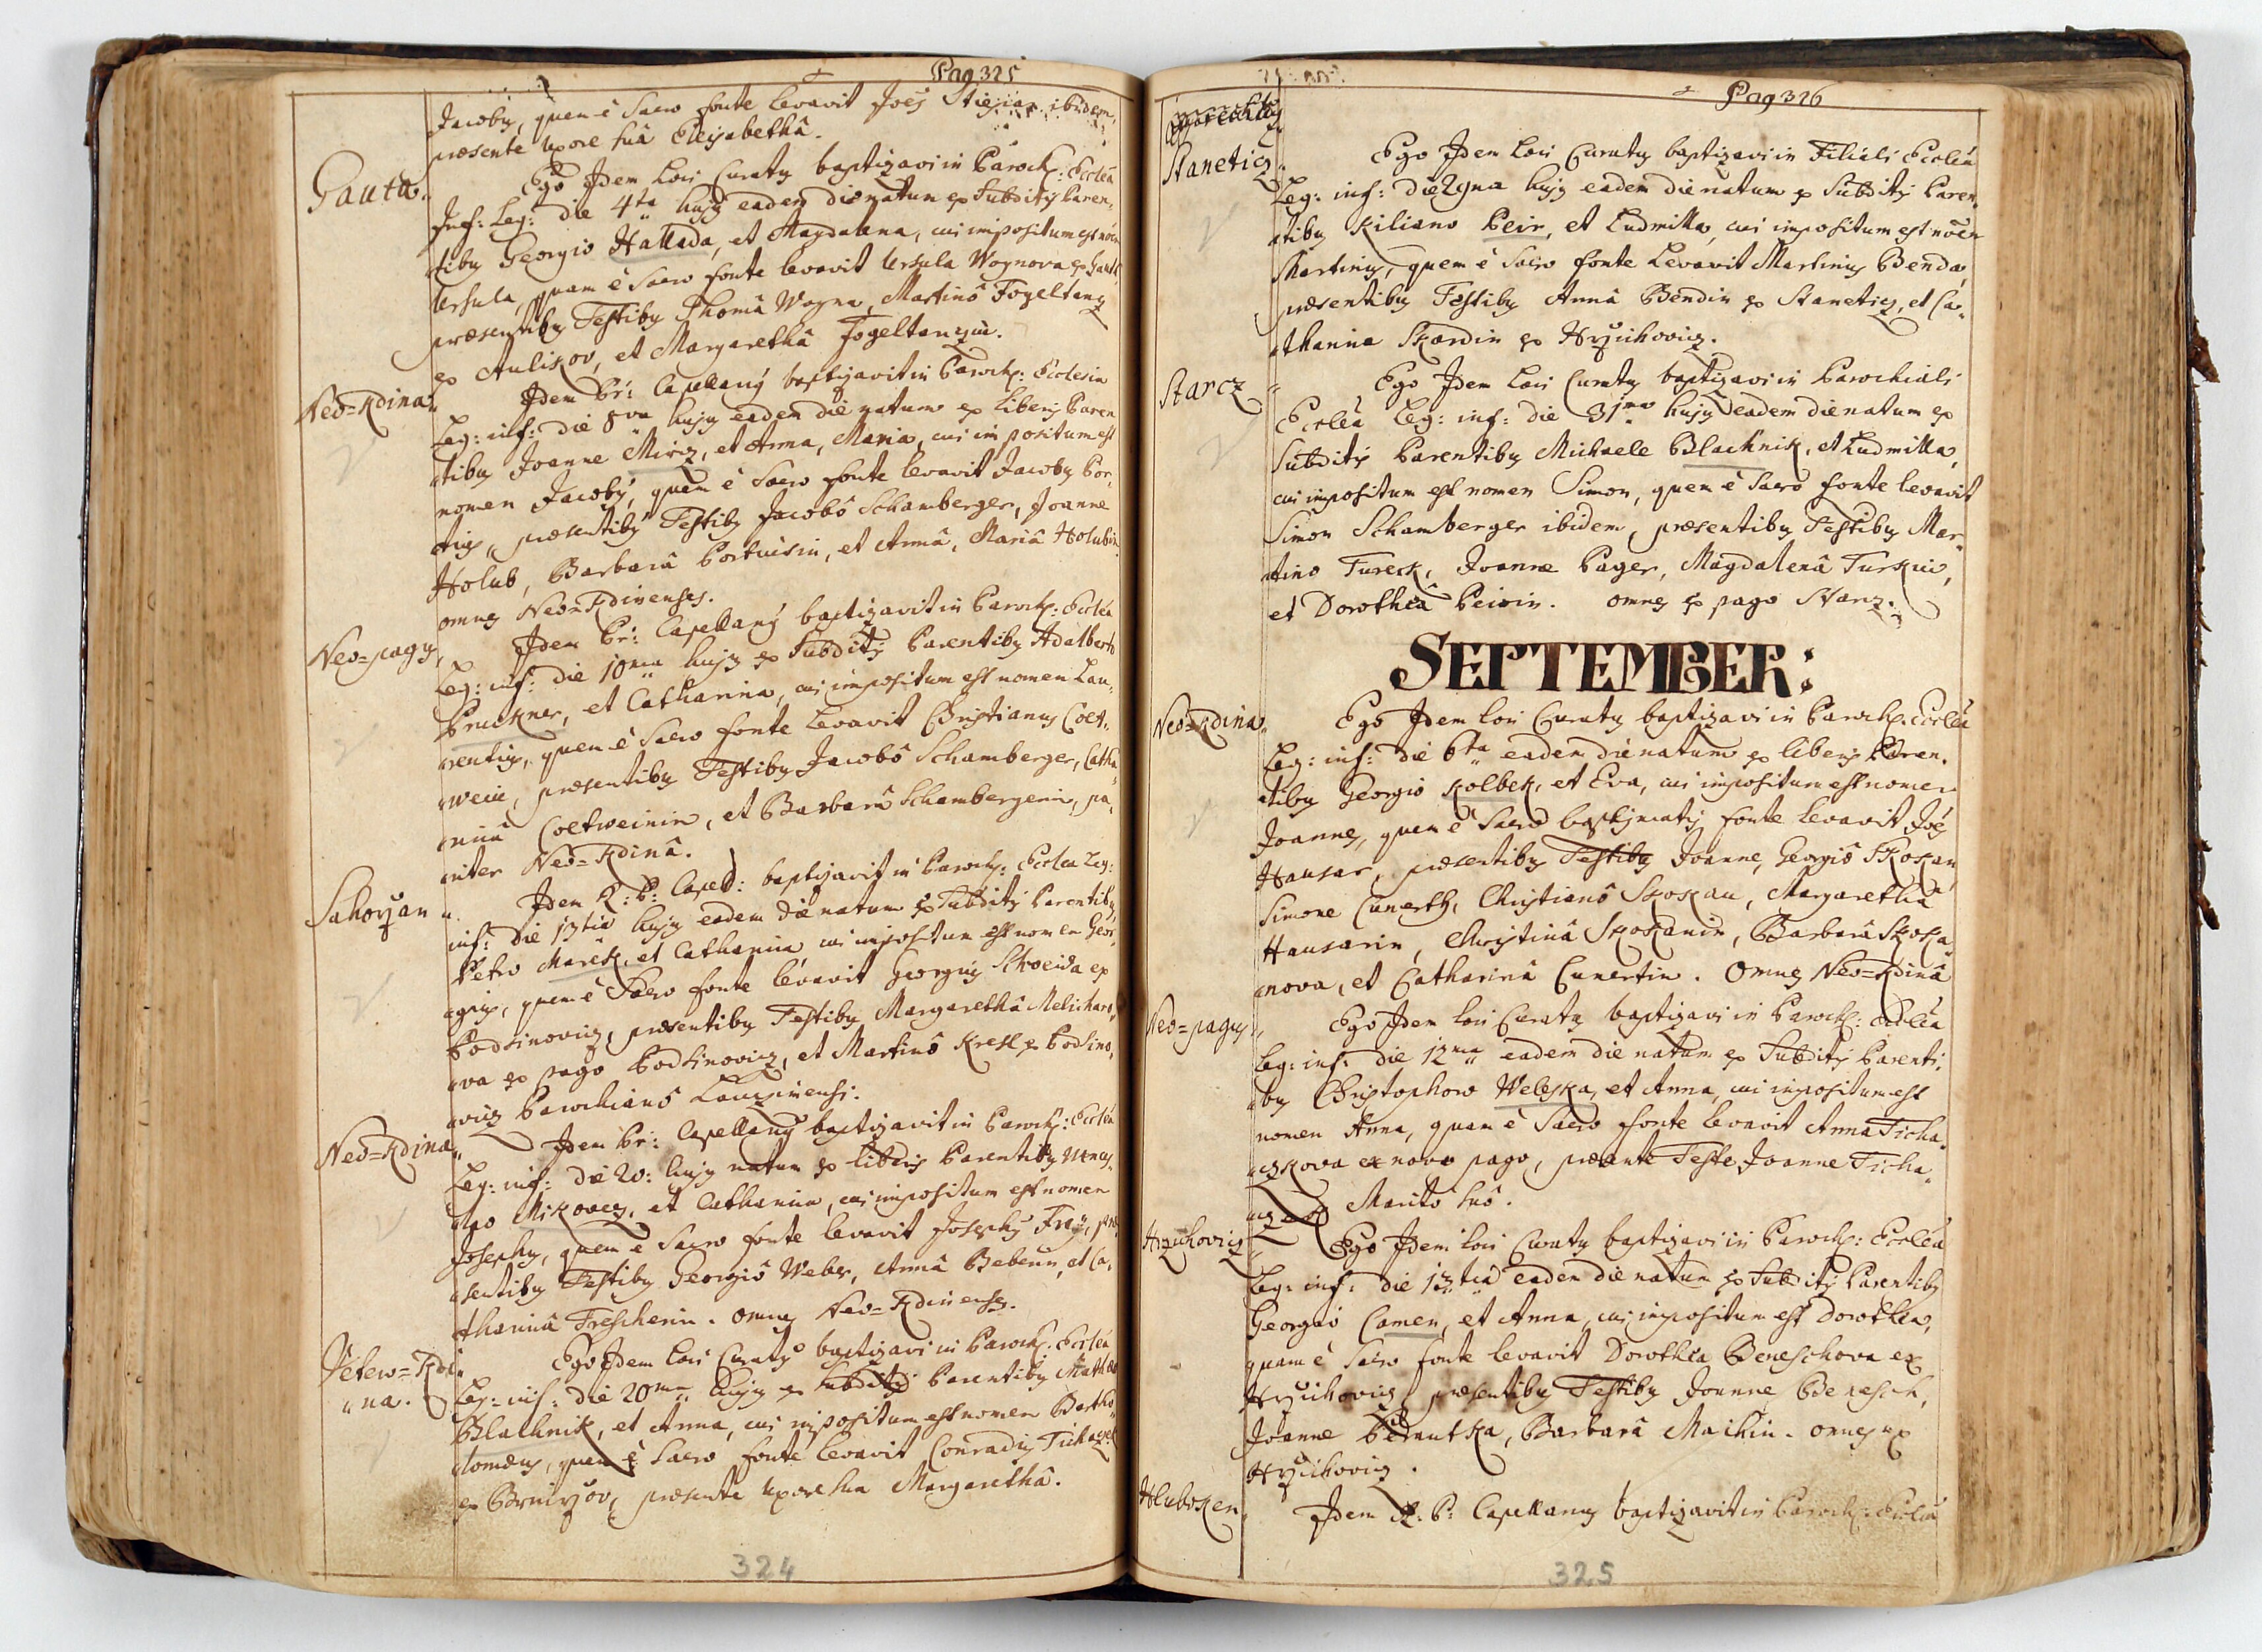 Pag 325
Jacobỹ, quem è Sacro fonte levavit Joẽs ibidem,
præsente Uxore suâ Elisabethâ.
Gauta.
Ego Idem Loci Curatỹ baptizavi in Paroch: Ecclẽa
Inf: Leg: die 4ta hujỹ eadem die natum ex Subditỹ Paren„
„tibỹ Georgio Hallada, et Magdalena, cui impositum est nõen
Ursula, quam è Sacro fonte levavit Ursula Wognova ex Gaut„
præsentibỹ Testibỹ Thomâ Wogna, Martinô Fogeltanz
ex Aulikov, et Margarethâ Fogeltanzin.
Neo=Kdina„
Idem Pr: Capellanỹ baptizavit in Paroch: Ecclesia
Leg: inf: die 8va hujỹ eadem die natum ex Liberỹ Paren
„tibỹ Joanne Miricz, et Anna, Maria, cui impositum est
nomen Jacobỹ, quem è Sacro fonte levavit Jacobỹ Por„
„tiỹ, præsentibỹ Testibỹ Jacobô Schamberger, Joanne
Holub, Barbarâ Portuisin, et Annâ, Mariâ Holubin
omnes Neo=Kdinenses.
Neo=pagỹ„
Idem Pr: Capellanỹ baptizavit in Paroch: Ecclẽa
Leg: inf: die 10ma hujỹ ex Subditỹ Parentibỹ Adalberto
Pruckner, et Catharina, cui impositum est nomen Lau„
„rentiỹ, quem è Sacro fonte levavit Christianỹ Coet„
„wein, præsentibỹ Testibỹ Jacobô Schamberger, Catha„
„rinâ Coetweinin, et Barbarâ Schambergerin, pa„
„riter Neo=Kdinâ.
Sahorzan„
Idem R: P: Capell: baptizavit in Paroch: Ecclẽa Leg:
inf: die 13tia hujỹ eadem die natum ex Subditỹ Parentibỹ
Petro Marek, et Catharina cui impositum est nomen Geor„
„giỹ, quem è Sacro fonte levavit Georgiỹ Schweida ex
Podzinovicz, præsentibỹ Testibỹ Margarethâ Melicharo„
„va ex pago Podzinovicz, et Martinô Kresl ex Podzino„
„vicz Parochianô Lauczinensi.
Neo=Kdina„
Idem Pr: Capellanỹ baptizavit in Paroch: Ecclẽa
Leg: inf: die 20: hujỹ natum ex liberis Parentibỹ Wences„
„lao Mikovecz, et Catharina, cui impositum est nomen
Josephỹ, quem è Sacro fonte levavit Josephỹ Frey, præ„
„sentibỹ Testibỹ Georgiô Weber, Annâ Bebenin, et Ca„
„tharinâ Freschenin. omnes Neo=Kdinenses.
Vetero=Kdi„
„na.
Ego Idem Loci Curatỹ baptizavi in Paroch: Ecclẽa
Leg: inf: die 20ma hujỹ ex Subditỹ Parentibỹ Matthæo
Blachnik, et Anna, cui impositum est nomen Bartho„
„lomæus, quem è Sacro fonte levavit Conradỹ Tichaczek
ex Brnirzov, præsente Uxore sua Margarethâ.
324
Pag 326
Staneticz„
Ego Idem Loci Curatỹ baptizavi in Filiali Ecclẽa
Leg: inf: die 29na hujỹ eadem die natum ex Subditỹ Paren„
„tibỹ Kiliano Peir, et Ludmilla, cui impositum est nõen
Martinỹ, quem è Sacro fonte Levavit Martinỹ Benda,
præsentibỹ Testibỹ Annâ Bendin ex Staneticz, et Ca„
„tharina Skardin ex Hrzichovicz.
Starcz„
Ego Idem Loci Curatỹ baptizavi in Parochiali
Ecclẽa Leg: inf: die 31ma hujỹ eadem die natum ex
Subditỹ Parentibỹ Michaele Blachnik, et Ludmilla,
cui impositum est nomen Simon, quem è Sacro fonte levavit
Simon Schamberger ibidem, præsentibỹ Testibỹ Mar„
„tino Tureck, Joanne Pager, Magdalenâ Turkin,
et Dorotheâ Peirin. omnes ex pago Starcz.
SEPTEMBER:
Neo=Kdina„
Ego Idem loci Curatỹ baptizavi in Paroch: Ecclẽa
Leg: inf: die 6ta eadem die natum ex liberỹ Paren„
„tibỹ Georgio Kolbek, et Eva, cui impositum est nomen
Joannes, quem è Sacro baptismatis fonte levavit Joẽs
Hausar, præsentibỹ Testibỹ Joanne, Georgiô Skokan,
Simone Cunerth, Christianô Skokan, Margarethâ
Hausarin, Christinâ Skokanin, Barbarâ Skoka„
„nova, et Catharinâ Cunertin. Omnes Neo=Kdinâ
Neo=pagỹ„
Ego Idem loci Curatỹ baptizavi in Paroch: Ecclẽa
Leg: inf: die 12ma eadem die natam ex Subditỹ Parenti„
„bỹ Christophoro Weleska, et Anna, cui impositum est
nomen Anna, quam è Sacro fonte levavit Anna Ticha„
„czkova ex novo pago, præsente Teste Joanne Ticha„
„czek Maritô suô.
Hrzichovicz„
Ego Idem loci Curatỹ baptizavi in Paroch: Ecclẽa
Leg: inf: die 13tia eadem die natam ex Subditỹ Parentibỹ
Georgio Camen, et Anna, cui impositum est Dorothea,
quam è Sacro fonte levavit Dorothea Beneschova ex
Hrzichovicz, præsentibỹ Testibỹ Joanne Benesch,
Joanne Pernutka, Barbarâ Machin. omnes ex
Hrzichovicz.
Hluboken„
Idem R: P: Capellanus baptizavit in Paroch: Ecclẽa
325